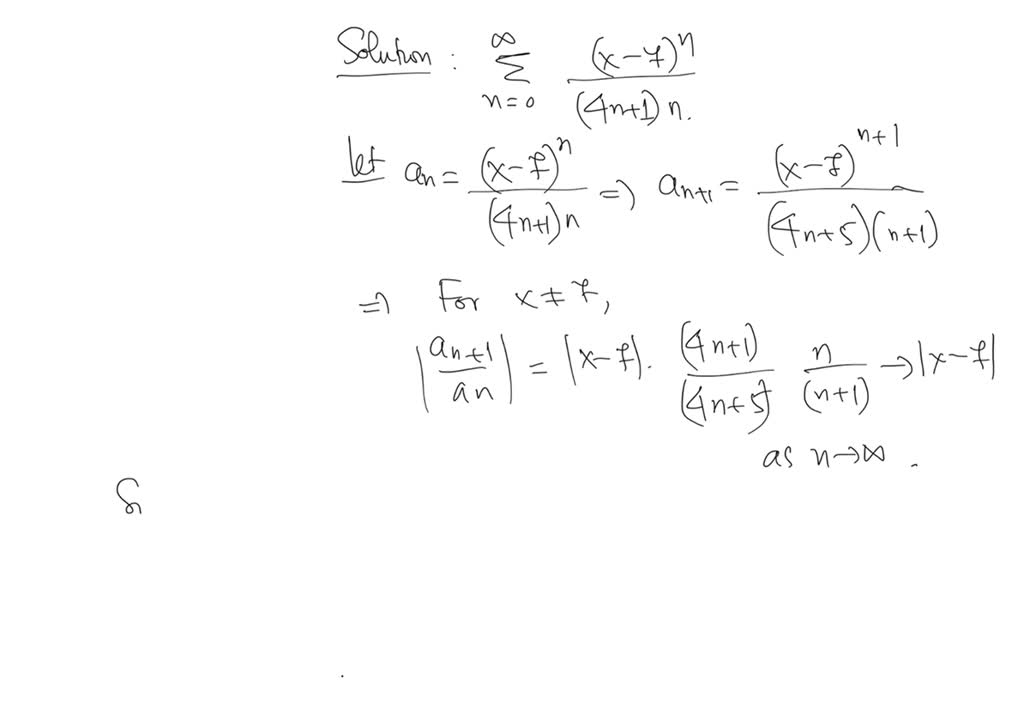 Solution : ∞ Σ n=0 (x-7)^n / (4n+1) n.
let an = (x-7)^n / (4n+1)n => an+1 = (x-7)^n+1 / (4n+5)(n+1)
=> For x ≠ 7,
|an+1 / an| = |x-7|. (4n+1) / (4n+5) n / (n+1) → |x-7|
as n→∞ .